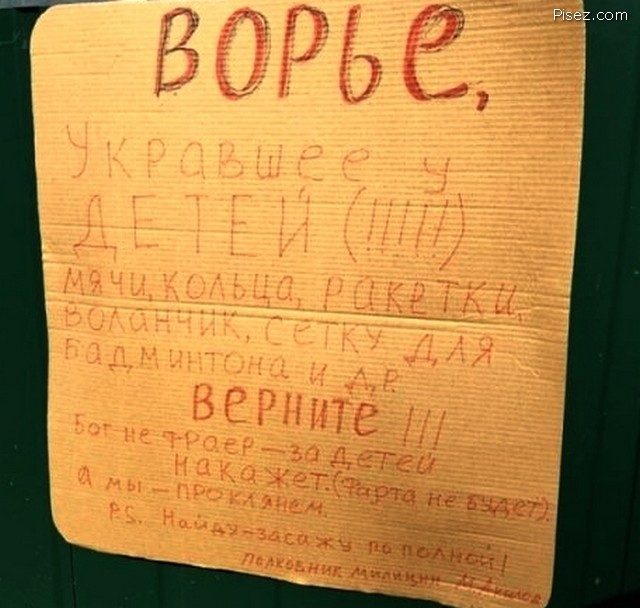 Pisez.com
ВОРЬЕ,
Укравшее у
ДЕТЕЙ (!!!!!)
мячи, кольца, ракетки,
воланчик, сетку для
бадминтона и др.
Верните !!!
Бог не фраер — за детей
накажет. (Фарта не будет).
а мы — проклянем.
P.S. Найду-засажу по полной!
Полковник милиции